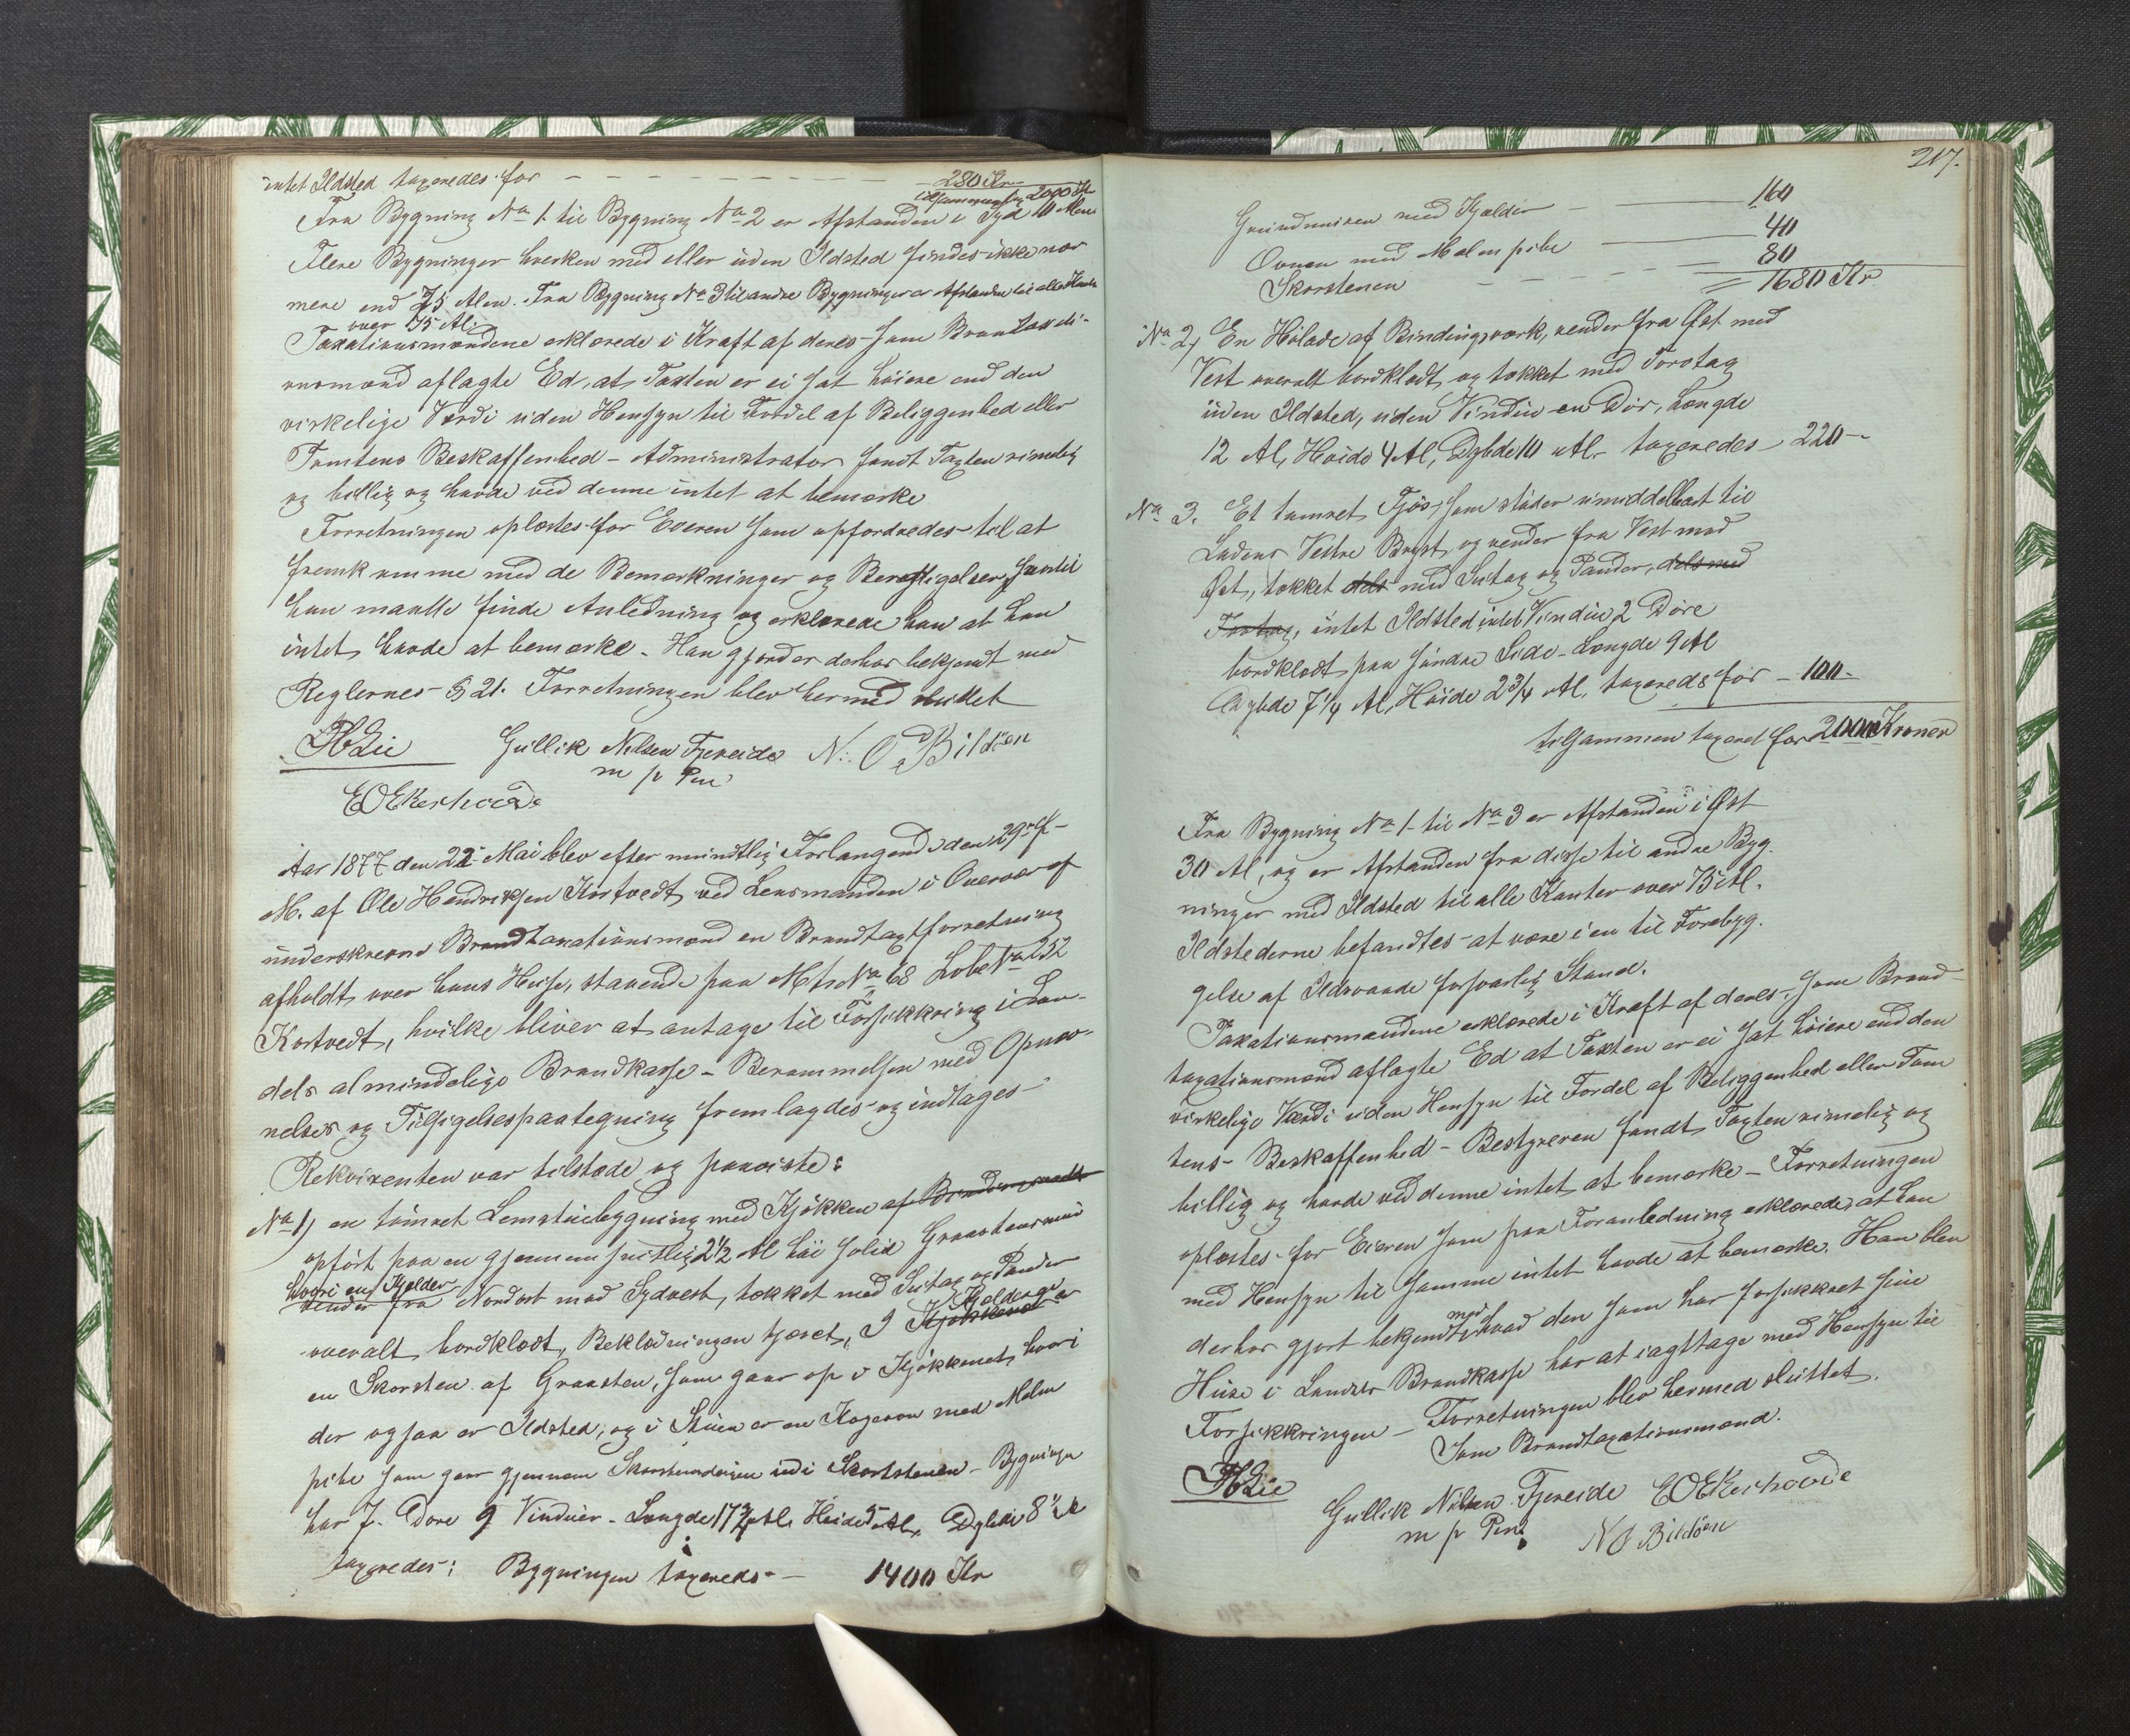 intet Ildsted taxeredes for — — — 280 Kr
tilsammen for 2000 Kr
Fra Bygning No 1 til Bygning No 2 er Afstanden i Syd 10 Alen
Flere Bygninger hverken med eller uden Ildsted findes ikke nær
mere end 75 Alen. Fra Bygning No 3 til andre Bygninger er Afstanden til alle Kanter
over 75 Al.
Taxationsmændene erklærede i Kraft af deres som Brandtaxati-
onsmænd aflagte Ed, at Taxten er ei sat høiere end den
virkelige Værdi uden Hensyn til Fordel af Beliggenhed eller
Tomtens Beskaffenhed – Administrator fandt Taxten rimelig
og billig og havde ved denne intet at bemærke
Forretningen oplæstes for Eieren som opfordredes til at
fremkomme med de Bemærkninger og Berigtigelser, hvortil
han maatte finde Anledning og erklærede han at han
intet havde at bemærke. Han gjordes derhos bekjendt med
Reglernes § 21. Forretningen blev hermed sluttet
HLie Gullik Nilsen Fjereide N: O. Bildöen
m p Pen
E O Ekerhovde
Aar 1877 den 22 Mai blev efter mundtlig Forlangende den 29 f.
M. af Ole Hendriksen Kortvedt ved Lensmanden i Overvær af
underskrevne Brandtaxationsmænd en Brandtaxtforretning
afholdt over hans Huse, staaende paa Mts No 68 Løbe No 252
Kortvedt, hvilke bliver at antage til Forsikkring i Lan-
dets almindelige Brandkasse – Berammelsen med Opnæv-
nelses og Tilsigelsespaategning fremlagdes og indtages
Rekvirenten var tilstæde og paaviste:
No 1, en tømret Lemstuebygning med Kjøkken af Bindingsværk
opført paa en gjennemsnitlig 2½ Al høi solid Graastensmur
hvori en Kjelder
vender fra Nordost mod Sydvest, tækket med Sutag og Pander
overalt bordklædt, Beklædningen tjæret, I Kjøkkenet Kjelderen er
en Skorsten af Graasten, som gaar op i Kjøkkenet, hvori
der ogsaa er Ildsted, og i Stuen er en Kogeovn med Malm
pibe som gaar gjennem Skorstensvæggen ind i Skortstenen – Bygningen
har 7 Døre 9 Vinduer – Længde 17¾ Al. Høide 5 Al. Dybde 8½ Al
taxeredes: Bygningen taxeredes — 1400 Kr
217.
Grundmuren med Kjælder — 160
Ovnen med Malmpibe — 40
Skorstenen — — — 80
= 1680 Kr
No 2, En Hølade af Bindingsværk, vender fra Øst med
Vest overalt bordklædt og tækket med Torvtag
uden Ildsted, uden Vindu en Dør, Længde
12 Al, Høide 4 Al, Dybde 10 Al. taxeredes 220 –
No 3. Et tømret Fjøs, som støder umiddelbart til
Ladens Vestre Bryst, og vender fra Vest mod
Øst, tækket dels med Sutag og Pander, dels med
Torvtag, intet Ildsted intet Vindu 2 Døre
bordklædt paa søndre Side – Længde 9 Al
Dybde 7¼ Al, Høide 2¾ Al, taxeredes for — 100 –
tilsammen taxeret for 2000 Kroner
Fra Bygning No 1 til No 3 er Afstanden i Øst
30 Al, og er Afstanden fra disse til andre Byg-
ninger med Ildsted til alle Kanter over 75 Al.
Ildstederne befandtes at være i en til Forebyg-
gelse af Ildsvaade forsvarlig Stand.
Taxationsmændene erklærede i Kraft af deres som Brand
taxationsmænd aflagte Ed at Taxten er ei sat høiere end den
virkelige Værdi uden Hensyn til Fordel af Beliggenhed eller Tom
tens Beskaffenhed – Bestyreren fandt Taxten rimelig og
billig og havde ved denne intet at bemærke – Forretningen
oplæstes for Eieren som paa Foranledning erklærede, at han
med Hensyn til samme intet havde at bemærke. Han blev
derhos gjort bekjendt med hvad den som har forsikkret sine
Huse i Landets Brandkasse har at iagttage med Hensyn til
Forsikkringen – Forretningen blev hermed sluttet.
Som Brandtaxationsmænd.
HLie
Gullik Nilsen Fjereide E O Ekerhovde
m p Pen N O Bildöen